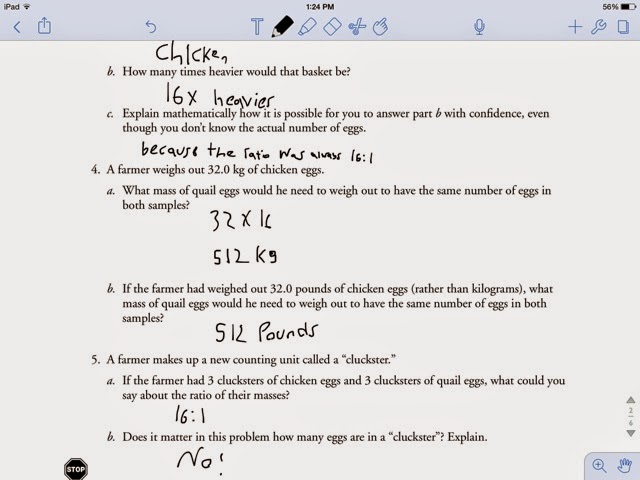 iPad
1:24 PM
56%
Chicken
b. How many times heavier would that basket be?
16x heavier
c. Explain mathematically how it is possible for you to answer part b with confidence, even
though you don't know the actual number of eggs.
because the ratio was always 16:1
4. A farmer weighs out 32.0 kg of chicken eggs.
a. What mass of quail eggs would he need to weigh out to have the same number of eggs in
both samples?
32 x 16
512 kg
b. If the farmer had weighed out 32.0 pounds of chicken eggs (rather than kilograms), what
mass of quail eggs would he need to weigh out to have the same number of eggs in both
samples?
512 Pounds
5. A farmer makes up a new counting unit called a “cluckster.”
a. If the farmer had 3 clucksters of chicken eggs and 3 clucksters of quail eggs, what could you
say about the ratio of their masses?
16:1
b. Does it matter in this problem how many eggs are in a “cluckster”? Explain.
No!
STOP
2
6